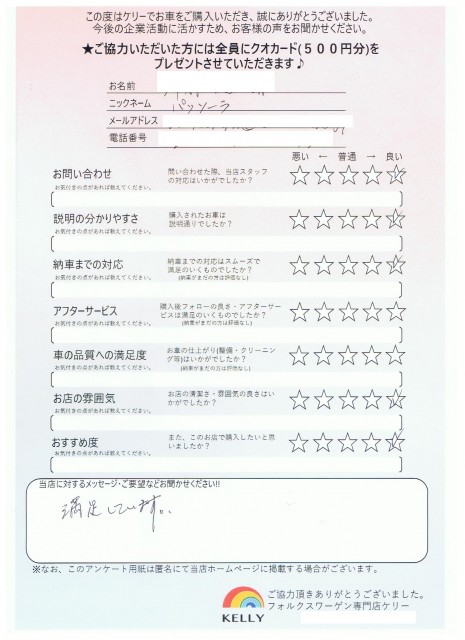 この度はケリーでお車をご購入いただき、誠にありがとうございました。
今後の企業活動に活かすため、お客様の声をお聞かせください。
★ご協力いただいた方には全員にクオカード(５００円分)を
プレゼントさせていただきます♪
お名前
ニックネーム パッソーラ
メールアドレス
電話番号
悪い ← 普通 → 良い
お問い合わせ
お気付きの点があれば教えてください。
問い合わせた際、当店スタッフ
の対応はいかがでしたか？
説明の分かりやすさ
お気付きの点があれば教えてください。
購入されたお車は
説明通りでしたか？
納車までの対応
お気付きの点があれば教えてください。
納車までの対応はスムーズで
満足のいくものでしたか？
(納車がまだの方は評価なし)
アフターサービス
お気付きの点があれば教えてください。
購入後フォローの良さ・アフターサー
ビスは満足のいくものでしたか？
(納車がまだの方は評価なし)
車の品質への満足度
お気付きの点があれば教えてください。
お車の仕上がり(整備・クリーニン
グ等)はいかがでしたか？
(納車がまだの方は評価なし)
お店の雰囲気
お気付きの点があれば教えてください。
お店の清潔さ・雰囲気の良さはい
かがでしたか？
おすすめ度
お気付きの点があれば教えてください。
また、このお店で購入したいと思
いましたか？
当店に対するメッセージ・ご要望などお聞かせください!!
満足しています。
※なお、このアンケート用紙は匿名にて当店ホームページに掲載する場合がございます。
KELLY
ご協力頂きありがとうございました。
フォルクスワーゲン専門店ケリー